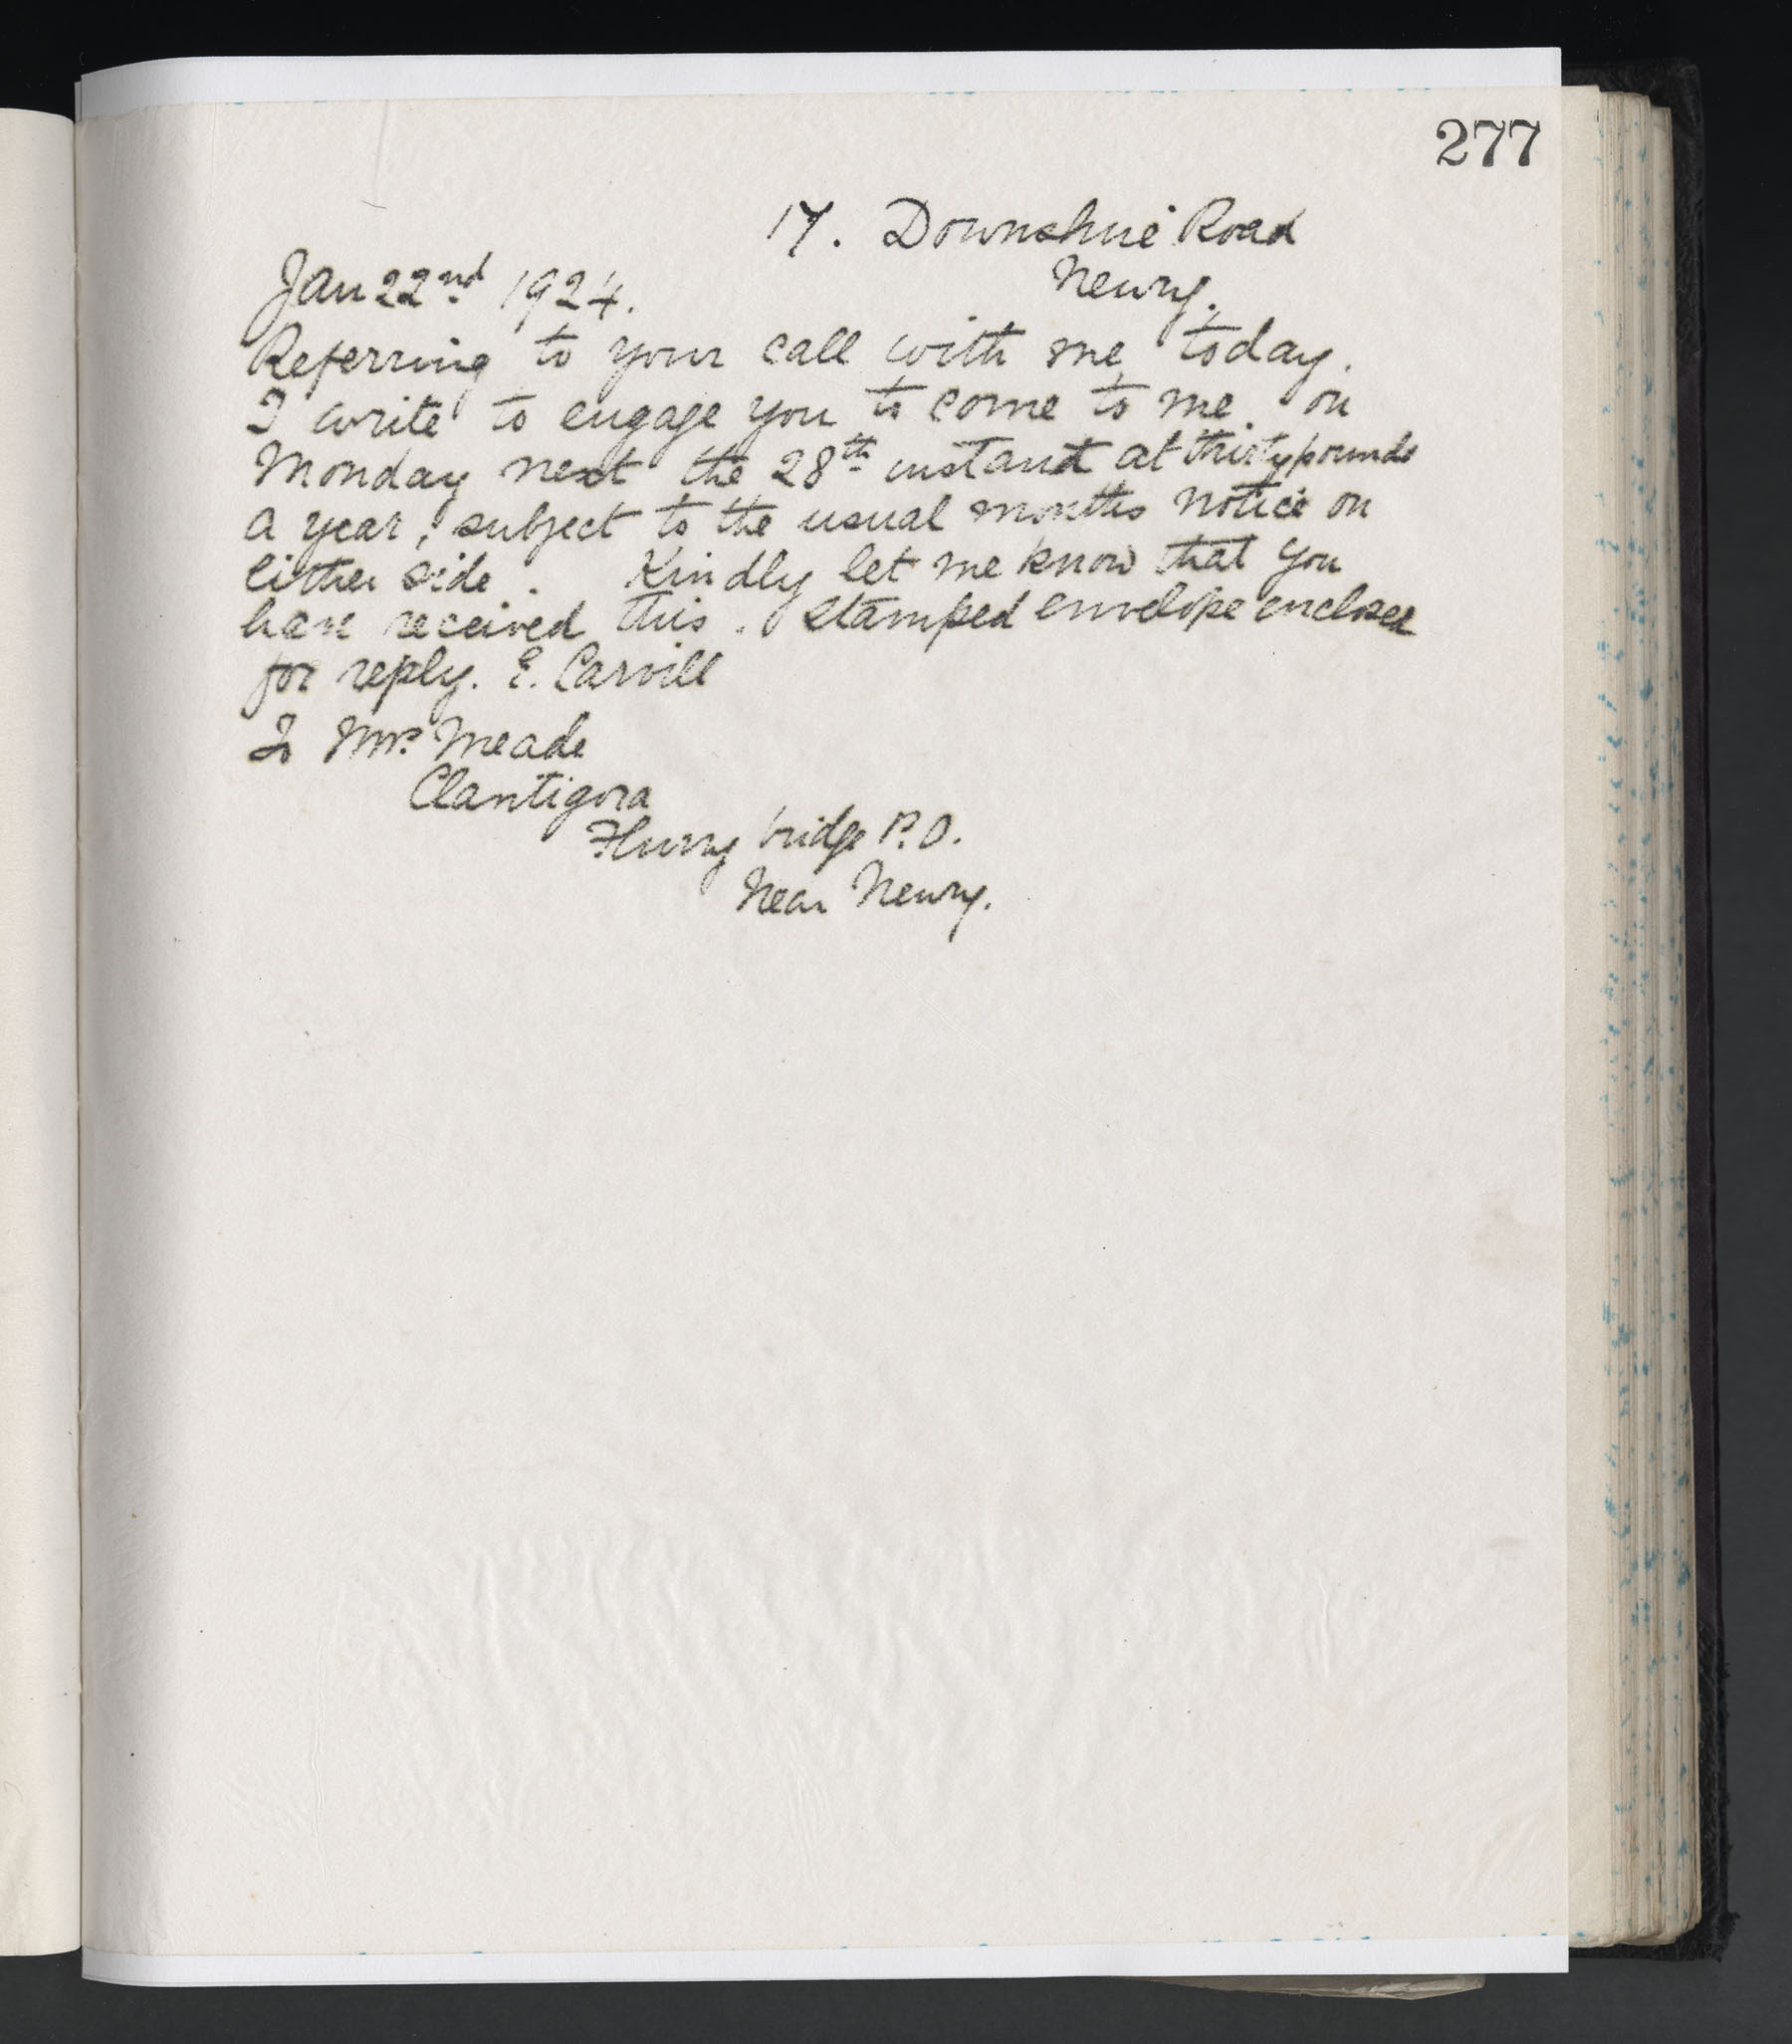 277
17. Downshire Road
Newry.
Jan 22nd 1924.
Referring to your call with me today.
I write to engage you to come to me on
Monday next the 28th instant at thirty pounds
a year, subject to the usual months notice on
either side. Kindly let me know that you
have received this. Stamped envelope enclosed
for reply. E. Carvill
To Mrs. Meade
Clantigora
Flurry bridge P.O.
Near Newry.